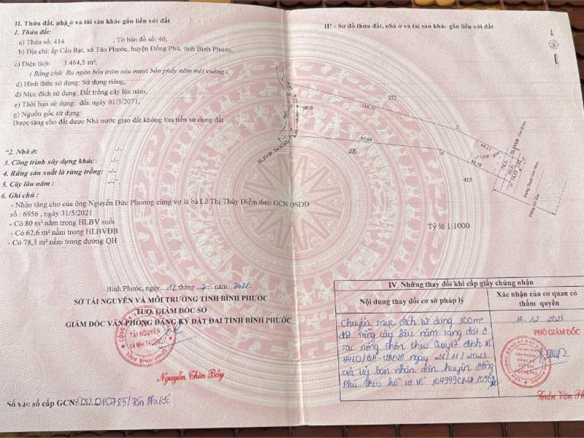 II. Thửa đất, nhà ở và tài sản khác gắn liền với đất
1. Thửa đất:
a) Thửa số: 414 , Tờ bản đồ số: 40,
b) Địa chỉ: ấp Cầu Rạt, xã Tân Phước, huyện Đồng Phú, tỉnh Bình Phước,
c) Diện tích: 3 464,5 m²,
( Bằng chữ: Ba ngàn bốn trăm sáu mươi bốn phẩy năm mét vuông ),
d) Hình thức sử dụng: Sử dụng riêng,
đ) Mục đích sử dụng: Đất trồng cây lâu năm,
e) Thời hạn sử dụng: đến ngày 01/3/2071,
g) Nguồn gốc sử dụng:
Được tặng cho đất được Nhà nước giao đất không thu tiền sử dụng đất
*2. Nhà ở:
3. Công trình xây dựng khác:
4. Rừng sản xuất là rừng trồng:
5. Cây lâu năm:
6. Ghi chú:
- Nhận tặng cho của ông Nguyễn Đức Phương cùng vợ là bà Lê Thị Thúy Diễm theo GCN QSDĐ
số: 6956 , ngày 31/5/2021
- Có 80 m² nằm trong HLBV suối
- Có 62,6 m² nằm trong HLBVĐB
- Có 78,3 m² nằm trong đường QH
Bình Phước, ngày tháng năm
SỞ TÀI NGUYÊN VÀ MÔI TRƯỜNG TỈNH BÌNH PHƯỚC
TUQ. GIÁM ĐỐC SỞ
GIÁM ĐỐC VĂN PHÒNG ĐĂNG KÝ ĐẤT ĐAI TỈNH BÌNH PHƯỚC
Nguyễn Thìn Bảy
Số vào sổ cấp GCN:
III. Sơ đồ thửa đất, nhà ở và tài sản khác gắn liền với đất
Tỷ lệ 1:1000
IV. Những thay đổi sau khi cấp giấy chứng nhận
Nội dung thay đổi và cơ sở pháp lý
Xác nhận của cơ quan có
thẩm quyền
Chuyển mục đích sử dụng 300m²
đất trồng cây lâu năm sang đất ở
tại nông thôn theo Quyết định số
ngày
của Uỷ ban nhân dân huyện Đồng
Phú theo hồ sơ số
PHÓ GIÁM ĐỐC